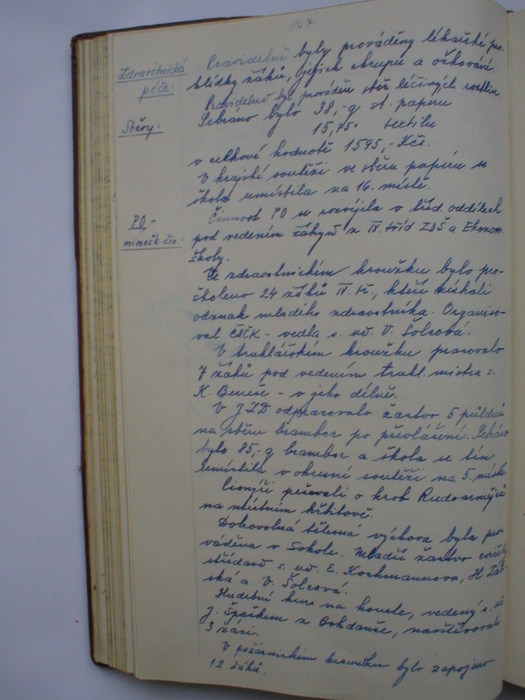 Zdravotnická péče:
Pravidelně byly prováděny lékařské pro-
hlídky žáků, jejich chrupu a očkování.
Sběry:
Pravidelně byl prováděn sběr léčivých rostlin
Sebrano bylo 38,- q st. paperu
15,75 textilu
v celkové hodnotě 1545,- Kčs.
V krajské soutěži ve sběru paperu se
škola umístila na 16. místě.
PO -
mimošk. čin.:
Činnost PO se rozvíjela v 6ti oddílech
pod vedením žákyň z IV. tříd ZDŠ a Ekonom.
školy.
Ve zdravotnickém kroužku bylo pro-
školeno 24 žáků IV. tř., kteří získali
odznak mladého zdravotníka. Organiso-
val ČSČK - vedla s. uč. V. Šolcová.
V truhlářském kroužku pracovalo
7 žáků pod vedením truhl. mistra s.
K. Beneše - v jeho dílně.
V JZD odpracovalo žactvo 5 půldnů
na sběru brambor po převláčení.
bylo 85,- q brambor a škola se tím
umístila v okresní soutěži na 5. místě
Pionýři pečovali o hrob Rudoarmějce
na místním hřbitově.
Dobrovolná tělesná výchova byla pro-
váděna v Sokole. Mladší žactvo cvičily
střídavě s. uč. E. Kochmannova, H.
a V. Šolcová.
Hudební kurs na housle, vedený s. uč.
J. Špačkem z Bohdanče, navštěvovali
3 žáci.
V požárnickém kroužku bylo zapojeno
12 žáků.